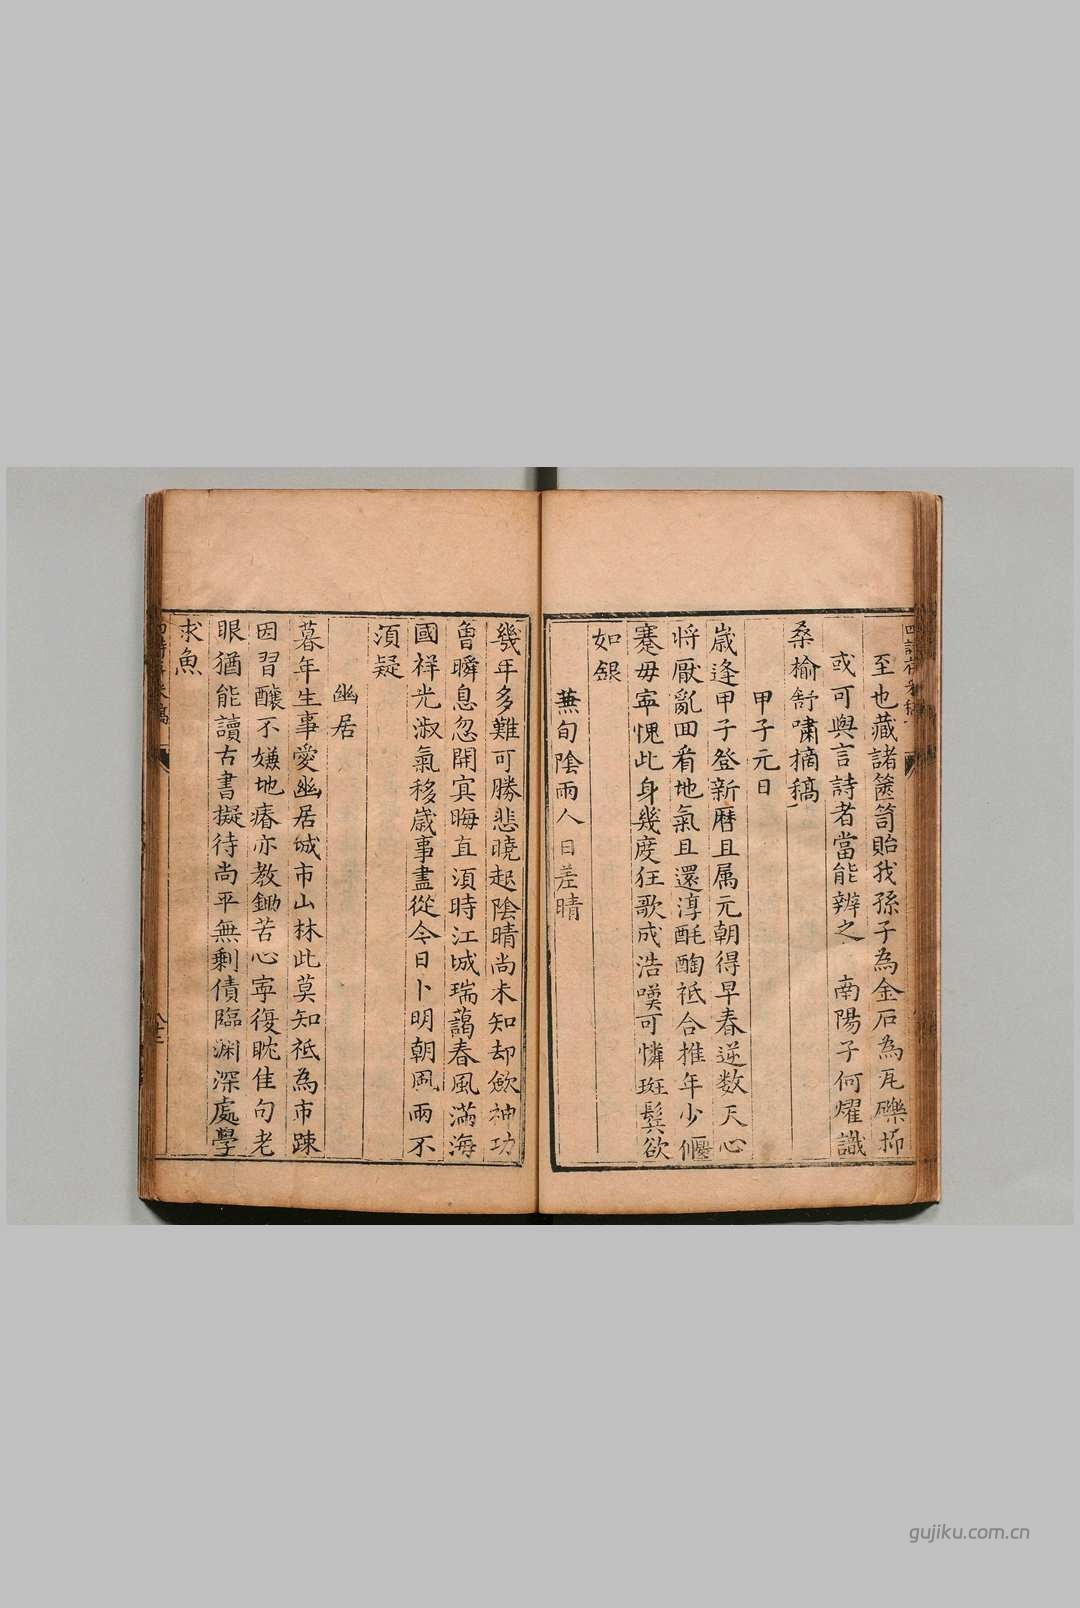 至也藏諸篋笥貽我孫子為金石為瓦礫抑
或可與言詩者當能辨之 南陽子何燿識
桑榆舒嘯摘稿
甲子元日
歲逢甲子登新曆且属元朝得早春逆数天心
将厭亂回看地氣且還淳酕醄祗合推年少偃
蹇毋寕愧此身幾度狂歌成浩嘆可憐斑鬂欲
如銀
蕪旬陰雨人日差晴
幾年多難可勝悲曉起陰晴尚未知却歛神功
曾瞬息忽開㝠晦直湏時江城瑞藹春風滿海
國祥光淑氣移歲事盡從今日卜明朝風雨不
湏疑
幽居
暮年生事愛幽居城市山林此莫知祗為市踈
因習釀不嫌地瘠亦教鋤苦心寜復眈佳句老
眼猶能讀古書擬待尚平無剩債臨渊深處學
求魚
gujiku.com.cn